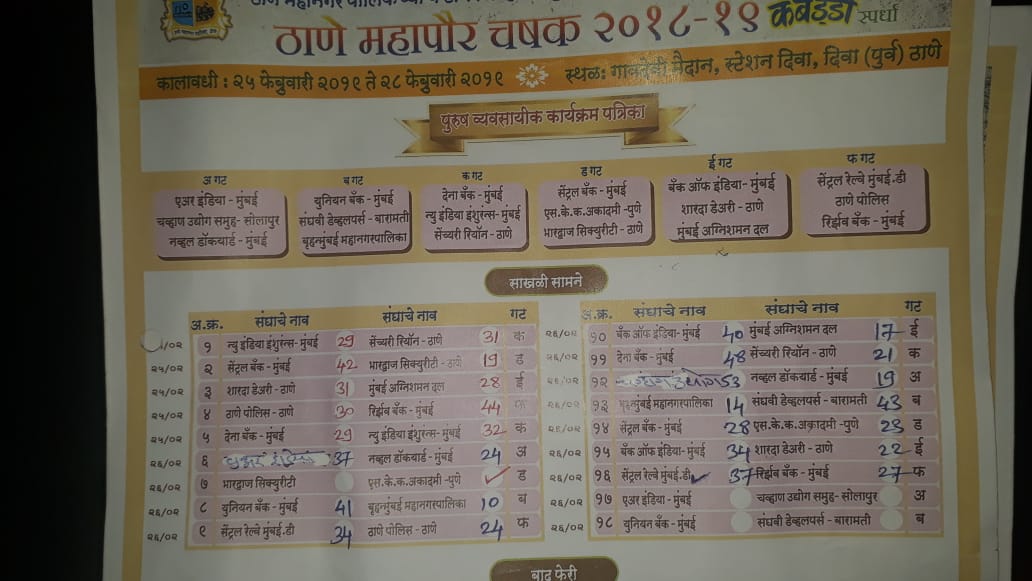 ठाणे महापौर चषक २०१८-१९ कबड्डी स्पर्धा
कालावधी : २५ फेब्रुवारी २०१९ ते २८ फेब्रुवारी २०१९ स्थळ: गावदेवी मैदान, स्टेशन दिवा, दिवा (पुर्व) ठाणे
पुरुष व्यवसायीक कार्यक्रम पत्रिका
अ गट ब गट क गट ड गट ई गट फ गट
एअर इंडिया - मुंबई युनियन बँक - मुंबई देना बँक - मुंबई सेंट्रल बँक - मुंबई बँक ऑफ इंडिया- मुंबई सेंट्रल रेल्वे मुंबई.डी
चव्हाण उद्योग समुह- सोलापुर संघवी डेव्हलपर्स - बारामती न्यु इंडिया इंशुरन्स- मुंबई एस.के.क.अकादमी -पुणे शारदा डेअरी - ठाणे ठाणे पोलिस
नव्हल डॉकयार्ड - मुंबई बृहन्मुंबई महानगरपालिका सेंच्यरी रियॉन - ठाणे भारद्वाज सिक्युरीटी - ठाणे मुंबई अग्निशमन दल रिर्झव बँक - मुंबई
साखळी सामने
अ.क्र. संघाचे नाव संघाचे नाव गट संघाचे नाव संघाचे नाव गट
/०२ १ न्यु इंडिया इंशुरन्स-मुंबई 29 सेंच्यरी रियॉन - ठाणे 31 क
२५/०२ २ सेंट्रल बँक - मुंबई 42 भारद्वाज सिक्युरीटी - ठाणे 19 ड
२५/०२ ३ शारदा डेअरी - ठाणे 31 मुंबई अग्निशमन दल 28 ई
२५/०२ ४ ठाणे पोलिस - ठाणे 30 रिर्झव बँक - मुंबई 44 फ
२५/०२ ५ देना बँक - मुंबई 29 न्यु इंडिया इंशुरन्स- मुंबई 32 क
२६/०२ ६ एअर इंडिया 37 नव्हल डॉकयार्ड - मुंबई 24 अ
२६/०२ ७ भारद्वाज सिक्युरीटी एस.के.क.अकादमी -पुणे ✓ ड
२६/०२ ८ युनियन बँक - मुंबई 41 बृहन्मुंबई महानगरपालिका 10 ब
२६/०२ ९ सेंट्रल रेल्वे मुंबई.डी 34 ठाणे पोलिस - ठाणे 24 फ
२६/०२ १० बँक ऑफ इंडिया- मुंबई 40 मुंबई अग्निशमन दल 17 ई
२६/०२ ११ देना बँक - मुंबई 48 सेंच्यरी रियॉन - ठाणे 21 क
२६/०२ १२ 53 नव्हल डॉकयार्ड - मुंबई 19 अ
२६/०२ १३ बृहन्मुंबई महानगरपालिका 14 संघवी डेव्हलपर्स - बारामती 43 ब
२६/०२ १४ सेंट्रल बँक - मुंबई 28 एस.के.क.अकादमी -पुणे 23 ड
२६/०२ १५ बँक ऑफ इंडिया - मुंबई 34 शारदा डेअरी - ठाणे 22 ई
२६/०२ १६ सेंट्रल रेल्वे मुंबई.डी ✓ 37 रिर्झव बँक - मुंबई 27 फ
२६/०२ १७ एअर इंडिया - मुंबई चव्हाण उद्योग समुह- सोलापुर अ
२६/०२ १८ युनियन बँक - मुंबई संघवी डेव्हलपर्स - बारामती ब
बाद फेरी